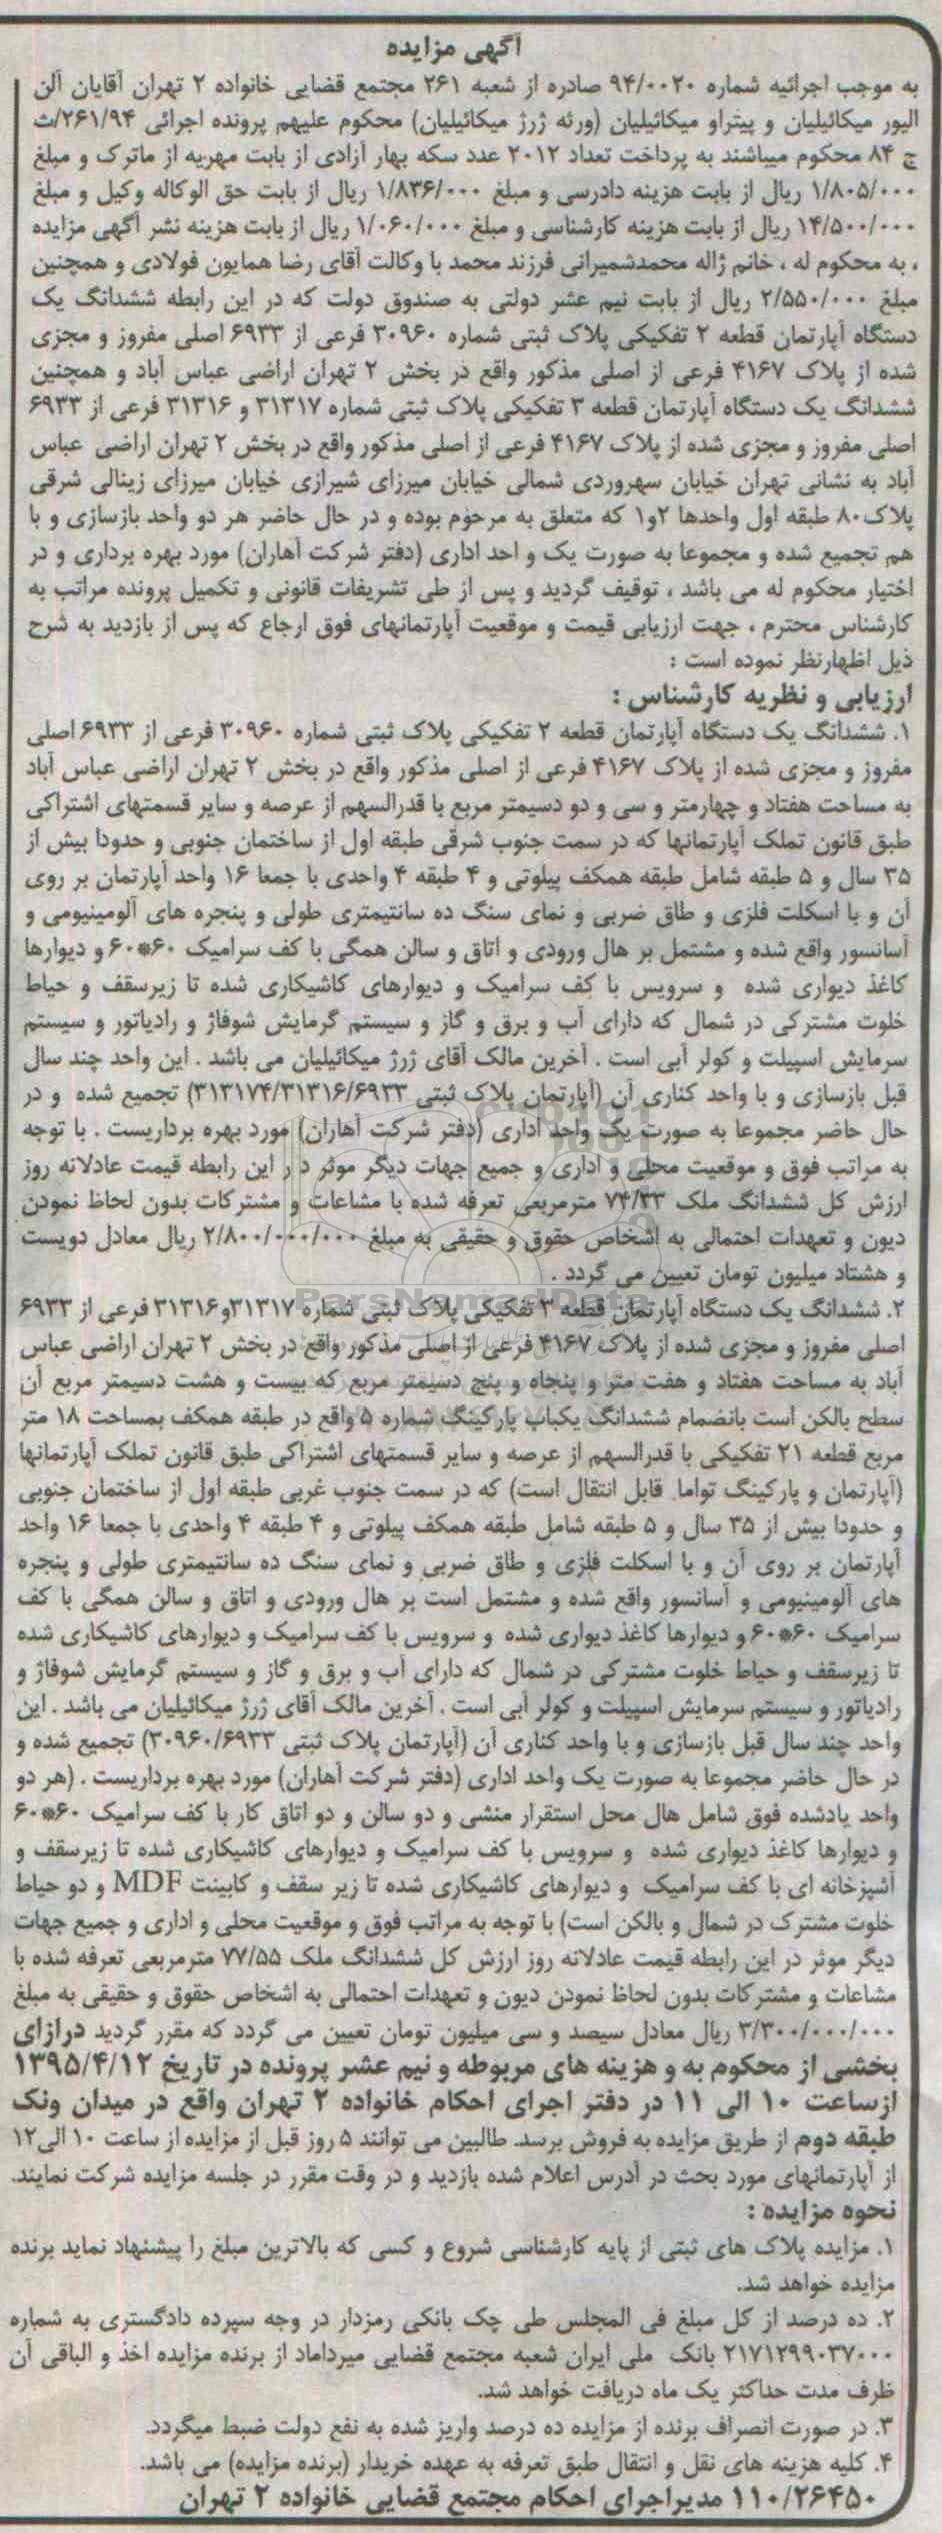 آگهی مزایده
به موجب اجرائیه شماره ۹۴/۰۰۲۰ صادره از شعبه ۲۶۱ مجتمع قضایی خانواده ۲ تهران آقایان آلن
الیور میکائیلیان و پیتراو میکائیلیان (ورثه ژرژ میکائیلیان) محکوم علیهم پرونده اجرائی ۲۶۱/۹۴/ث
ج ۸۴ محکوم میباشند به پرداخت تعداد ۲۰۱۲ عدد سکه بهار آزادی از بابت مهریه از ماترک و مبلغ
۱/۸۰۵/۰۰۰ ریال از بابت هزینه دادرسی و مبلغ ۱/۸۳۶/۰۰۰ ریال از بابت حق الوکاله وکیل و مبلغ
۱۴/۵۰۰/۰۰۰ ریال از بابت هزینه کارشناسی و مبلغ ۱/۰۶۰/۰۰۰ ریال از بابت هزینه نشر آگهی مزایده
، به محکوم له ، خانم ژاله محمدشمیرانی فرزند محمد با وکالت آقای رضا همایون فولادی و همچنین
مبلغ ۲/۵۵۰/۰۰۰ ریال از بابت نیم عشر دولتی به صندوق دولت که در این رابطه ششدانگ یک
دستگاه آپارتمان قطعه ۲ تفکیکی پلاک ثبتی شماره ۳۰۹۶۰ فرعی از ۶۹۳۳ اصلی مفروز و مجزی
شده از پلاک ۴۱۶۷ فرعی از اصلی مذکور واقع در بخش ۲ تهران اراضی عباس آباد و همچنین
ششدانگ یک دستگاه آپارتمان قطعه ۳ تفکیکی پلاک ثبتی شماره ۳۱۳۱۷ و ۳۱۳۱۶ فرعی از ۶۹۳۳
اصلی مفروز و مجزی شده از پلاک ۴۱۶۷ فرعی از اصلی مذکور واقع در بخش ۲ تهران اراضی عباس
آباد به نشانی تهران خیابان سهروردی شمالی خیابان میرزای شیرازی خیابان میرزای زینالی شرقی
پلاک۸۰ طبقه اول واحدها ۱و۲ که متعلق به مرحوم بوده و در حال حاضر هر دو واحد بازسازی و با
هم تجمیع شده و مجموعا به صورت یک و احد اداری (دفتر شرکت آهاران) مورد بهره برداری و در
اختیار محکوم له می باشد ، توقیف گردید و پس از طی تشریفات قانونی و تکمیل پرونده مراتب به
کارشناس محترم ، جهت ارزیابی قیمت و موقعیت آپارتمانهای فوق ارجاع که پس از بازدید به شرح
ذیل اظهارنظر نموده است :
ارزیابی و نظریه کارشناس :
۱. ششدانگ یک دستگاه آپارتمان قطعه ۲ تفکیکی پلاک ثبتی شماره ۳۰۹۶۰ فرعی از ۶۹۳۳ اصلی
مفروز و مجزی شده از پلاک ۴۱۶۷ فرعی از اصلی مذکور واقع در بخش ۲ تهران اراضی عباس آباد
به مساحت هفتاد و چهارمتر و سی و دو دسیمتر مربع با قدرالسهم از عرصه و سایر قسمتهای اشتراکی
طبق قانون تملک آپارتمانها که در سمت جنوب شرقی طبقه اول از ساختمان جنوبی و حدودا بیش از
۳۵ سال و ۵ طبقه شامل طبقه همکف پیلوتی و ۴ طبقه ۴ واحدی با جمعا ۱۶ واحد آپارتمان بر روی
آن و با اسکلت فلزی و طاق ضربی و نمای سنگ ده سانتیمتری طولی و پنجره های آلومینیومی و
آسانسور واقع شده و مشتمل بر هال ورودی و اتاق و سالن همگی با کف سرامیک ۶۰*۶۰ و دیوارها
کاغذ دیواری شده و سرویس با کف سرامیک و دیوارهای کاشیکاری شده تا زیرسقف و حیاط
خلوت مشترکی در شمال که دارای آب و برق و گاز و سیستم گرمایش شوفاژ و رادیاتور و سیستم
سرمایش اسپیلت و کولر آبی است . آخرین مالک آقای ژرژ میکائیلیان می باشد . این واحد چند سال
قبل بازسازی و با واحد کناری آن (آپارتمان پلاک ثبتی ۳۱۳۱۷۴/۳۱۳۱۶/۶۹۳۳) تجمیع شده و در
حال حاضر مجموعا به صورت یک واحد اداری (دفتر شرکت آهاران) مورد بهره برداریست . با توجه
به مراتب فوق و موقعیت محلی و اداری و جمیع جهات دیگر موثر در این رابطه قیمت عادلانه روز
ارزش کل ششدانگ ملک ۷۴/۳۳ مترمربعی تعرفه شده با مشاعات و مشترکات بدون لحاظ نمودن
دیون و تعهدات احتمالی به اشخاص حقوق و حقیقی به مبلغ ۲/۸۰۰/۰۰۰/۰۰۰ ریال معادل دویست
و هشتاد میلیون تومان تعیین می گردد .
۲. ششدانگ یک دستگاه آپارتمان قطعه ۳ تفکیکی پلاک ثبتی شماره ۳۱۳۱۷و۳۱۳۱۶ فرعی از ۶۹۳۳
اصلی مفروز و مجزی شده از پلاک ۴۱۶۷ فرعی از اصلی مذکور واقع در بخش ۲ تهران اراضی عباس
آباد به مساحت هفتاد و هفت متر و پنجاه و پنج دسیمتر مربع که بیست و هشت دسیمتر مربع آن
سطح بالکن است بانضمام ششدانگ یکباب پارکینگ شماره ۵ واقع در طبقه همکف بمساحت ۱۸ متر
مربع قطعه ۲۱ تفکیکی با قدرالسهم از عرصه و سایر قسمتهای اشتراکی طبق قانون تملک آپارتمانها
(آپارتمان و پارکینگ تواما قابل انتقال است) که در سمت جنوب غربی طبقه اول از ساختمان جنوبی
و حدودا بیش از ۳۵ سال و ۵ طبقه شامل طبقه همکف پیلوتی و ۴ طبقه ۴ واحدی با جمعا ۱۶ واحد
آپارتمان بر روی آن و با اسکلت فلزی و طاق ضربی و نمای سنگ ده سانتیمتری طولی و پنجره
های آلومینیومی و آسانسور واقع شده و مشتمل است بر هال ورودی و اتاق و سالن همگی با کف
سرامیک ۶۰*۶۰ و دیوارها کاغذ دیواری شده و سرویس با کف سرامیک و دیوارهای کاشیکاری شده
تا زیرسقف و حیاط خلوت مشترکی در شمال که دارای آب و برق و گاز و سیستم گرمایش شوفاژ و
رادیاتور و سیستم سرمایش اسپیلت و کولر آبی است . آخرین مالک آقای ژرژ میکائیلیان می باشد . این
واحد چند سال قبل بازسازی و با واحد کناری آن (آپارتمان پلاک ثبتی ۳۰۹۶۰/۶۹۳۳) تجمیع شده و
در حال حاضر مجموعا به صورت یک واحد اداری (دفتر شرکت آهاران) مورد بهره برداریست . (هر دو
واحد یادشده فوق شامل هال محل استقرار منشی و دو سالن و دو اتاق کار با کف سرامیک ۶۰*۶۰
و دیوارها کاغذ دیواری شده و سرویس با کف سرامیک و دیوارهای کاشیکاری شده تا زیرسقف و
آشپزخانه ای با کف سرامیک و دیوارهای کاشیکاری شده تا زیر سقف و کابینت MDF و دو حیاط
خلوت مشترک در شمال و بالکن است) با توجه به مراتب فوق و موقعیت محلی و اداری و جمیع جهات
دیگر موثر در این رابطه قیمت عادلانه روز ارزش کل ششدانگ ملک ۷۷/۵۵ مترمربعی تعرفه شده با
مشاعات و مشترکات بدون لحاظ نمودن دیون و تعهدات احتمالی به اشخاص حقوق و حقیقی به مبلغ
۳/۳۰۰/۰۰۰/۰۰۰ ریال معادل سیصد و سی میلیون تومان تعیین می گردد که مقرر گردید درازای
بخشی از محکوم به و هزینه های مربوطه و نیم عشر پرونده در تاریخ ۱۳۹۵/۴/۱۲
ازساعت ۱۰ الی ۱۱ در دفتر اجرای احکام خانواده ۲ تهران واقع در میدان ونک
طبقه دوم از طریق مزایده به فروش برسد. طالبین می توانند ۵ روز قبل از مزایده از ساعت ۱۰ الی۱۲
از آپارتمانهای مورد بحث در آدرس اعلام شده بازدید و در وقت مقرر در جلسه مزایده شرکت نمایند.
نحوه مزایده :
۱. مزایده پلاک های ثبتی از پایه کارشناسی شروع و کسی که بالاترین مبلغ را پیشنهاد نماید برنده
مزایده خواهد شد.
۲. ده درصد از کل مبلغ فی المجلس طی چک بانکی رمزدار در وجه سپرده دادگستری به شماره
۲۱۷۱۲۹۹۰۳۷۰۰۰ بانک ملی ایران شعبه مجتمع قضایی میرداماد از برنده مزایده اخذ و الباقی آن
ظرف مدت حداکثر یک ماه دریافت خواهد شد.
۳. در صورت انصراف برنده از مزایده ده درصد واریز شده به نفع دولت ضبط میگردد.
۴. کلیه هزینه های نقل و انتقال طبق تعرفه به عهده خریدار (برنده مزایده) می باشد.
۱۱۰/۲۶۴۵۰ مدیراجرای احکام مجتمع قضایی خانواده ۲ تهران